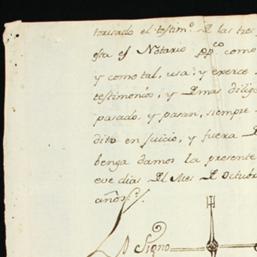 torisado el testim.o de las tres
esta es Notario pp.co como
y como tal, usa, y exerce
testimonios, y demas dilig
pasado, y pasan, siempre
dito en juicio, y fuera de
benga damos la presente
eve dias del Mes de Octubr
años
Signo